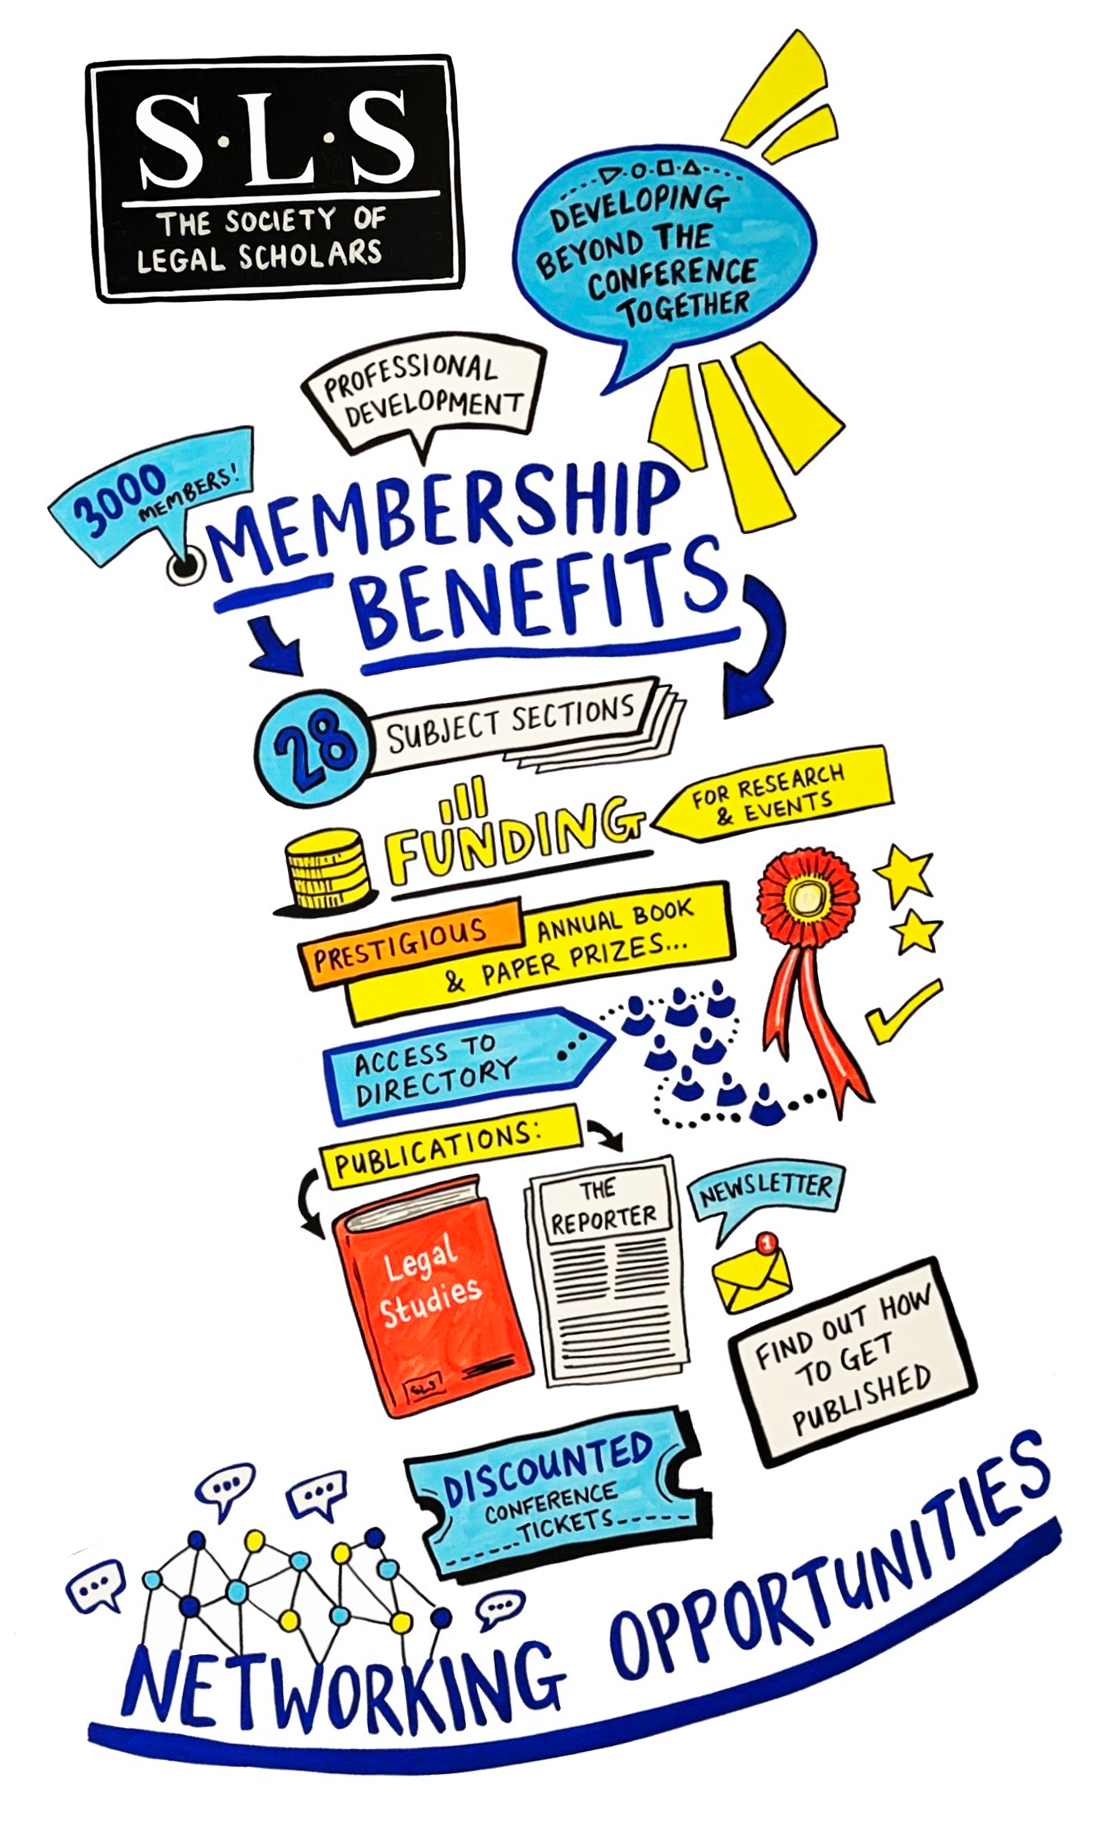 S·L·S
THE SOCIETY OF
LEGAL SCHOLARS
DEVELOPING
BEYOND THE
CONFERENCE
TOGETHER
PROFESSIONAL
DEVELOPMENT
3000
MEMBERS!
MEMBERSHIP
BENEFITS
28
SUBJECT SECTIONS
FUNDING
FOR RESEARCH
& EVENTS
PRESTIGIOUS
ANNUAL BOOK
& PAPER PRIZES...
ACCESS TO
DIRECTORY
PUBLICATIONS:
Legal
Studies
SLS
THE
REPORTER
NEWSLETTER
1
FIND OUT HOW
TO GET
PUBLISHED
DISCOUNTED
CONFERENCE
TICKETS
NETWORKING OPPORTUNITIES